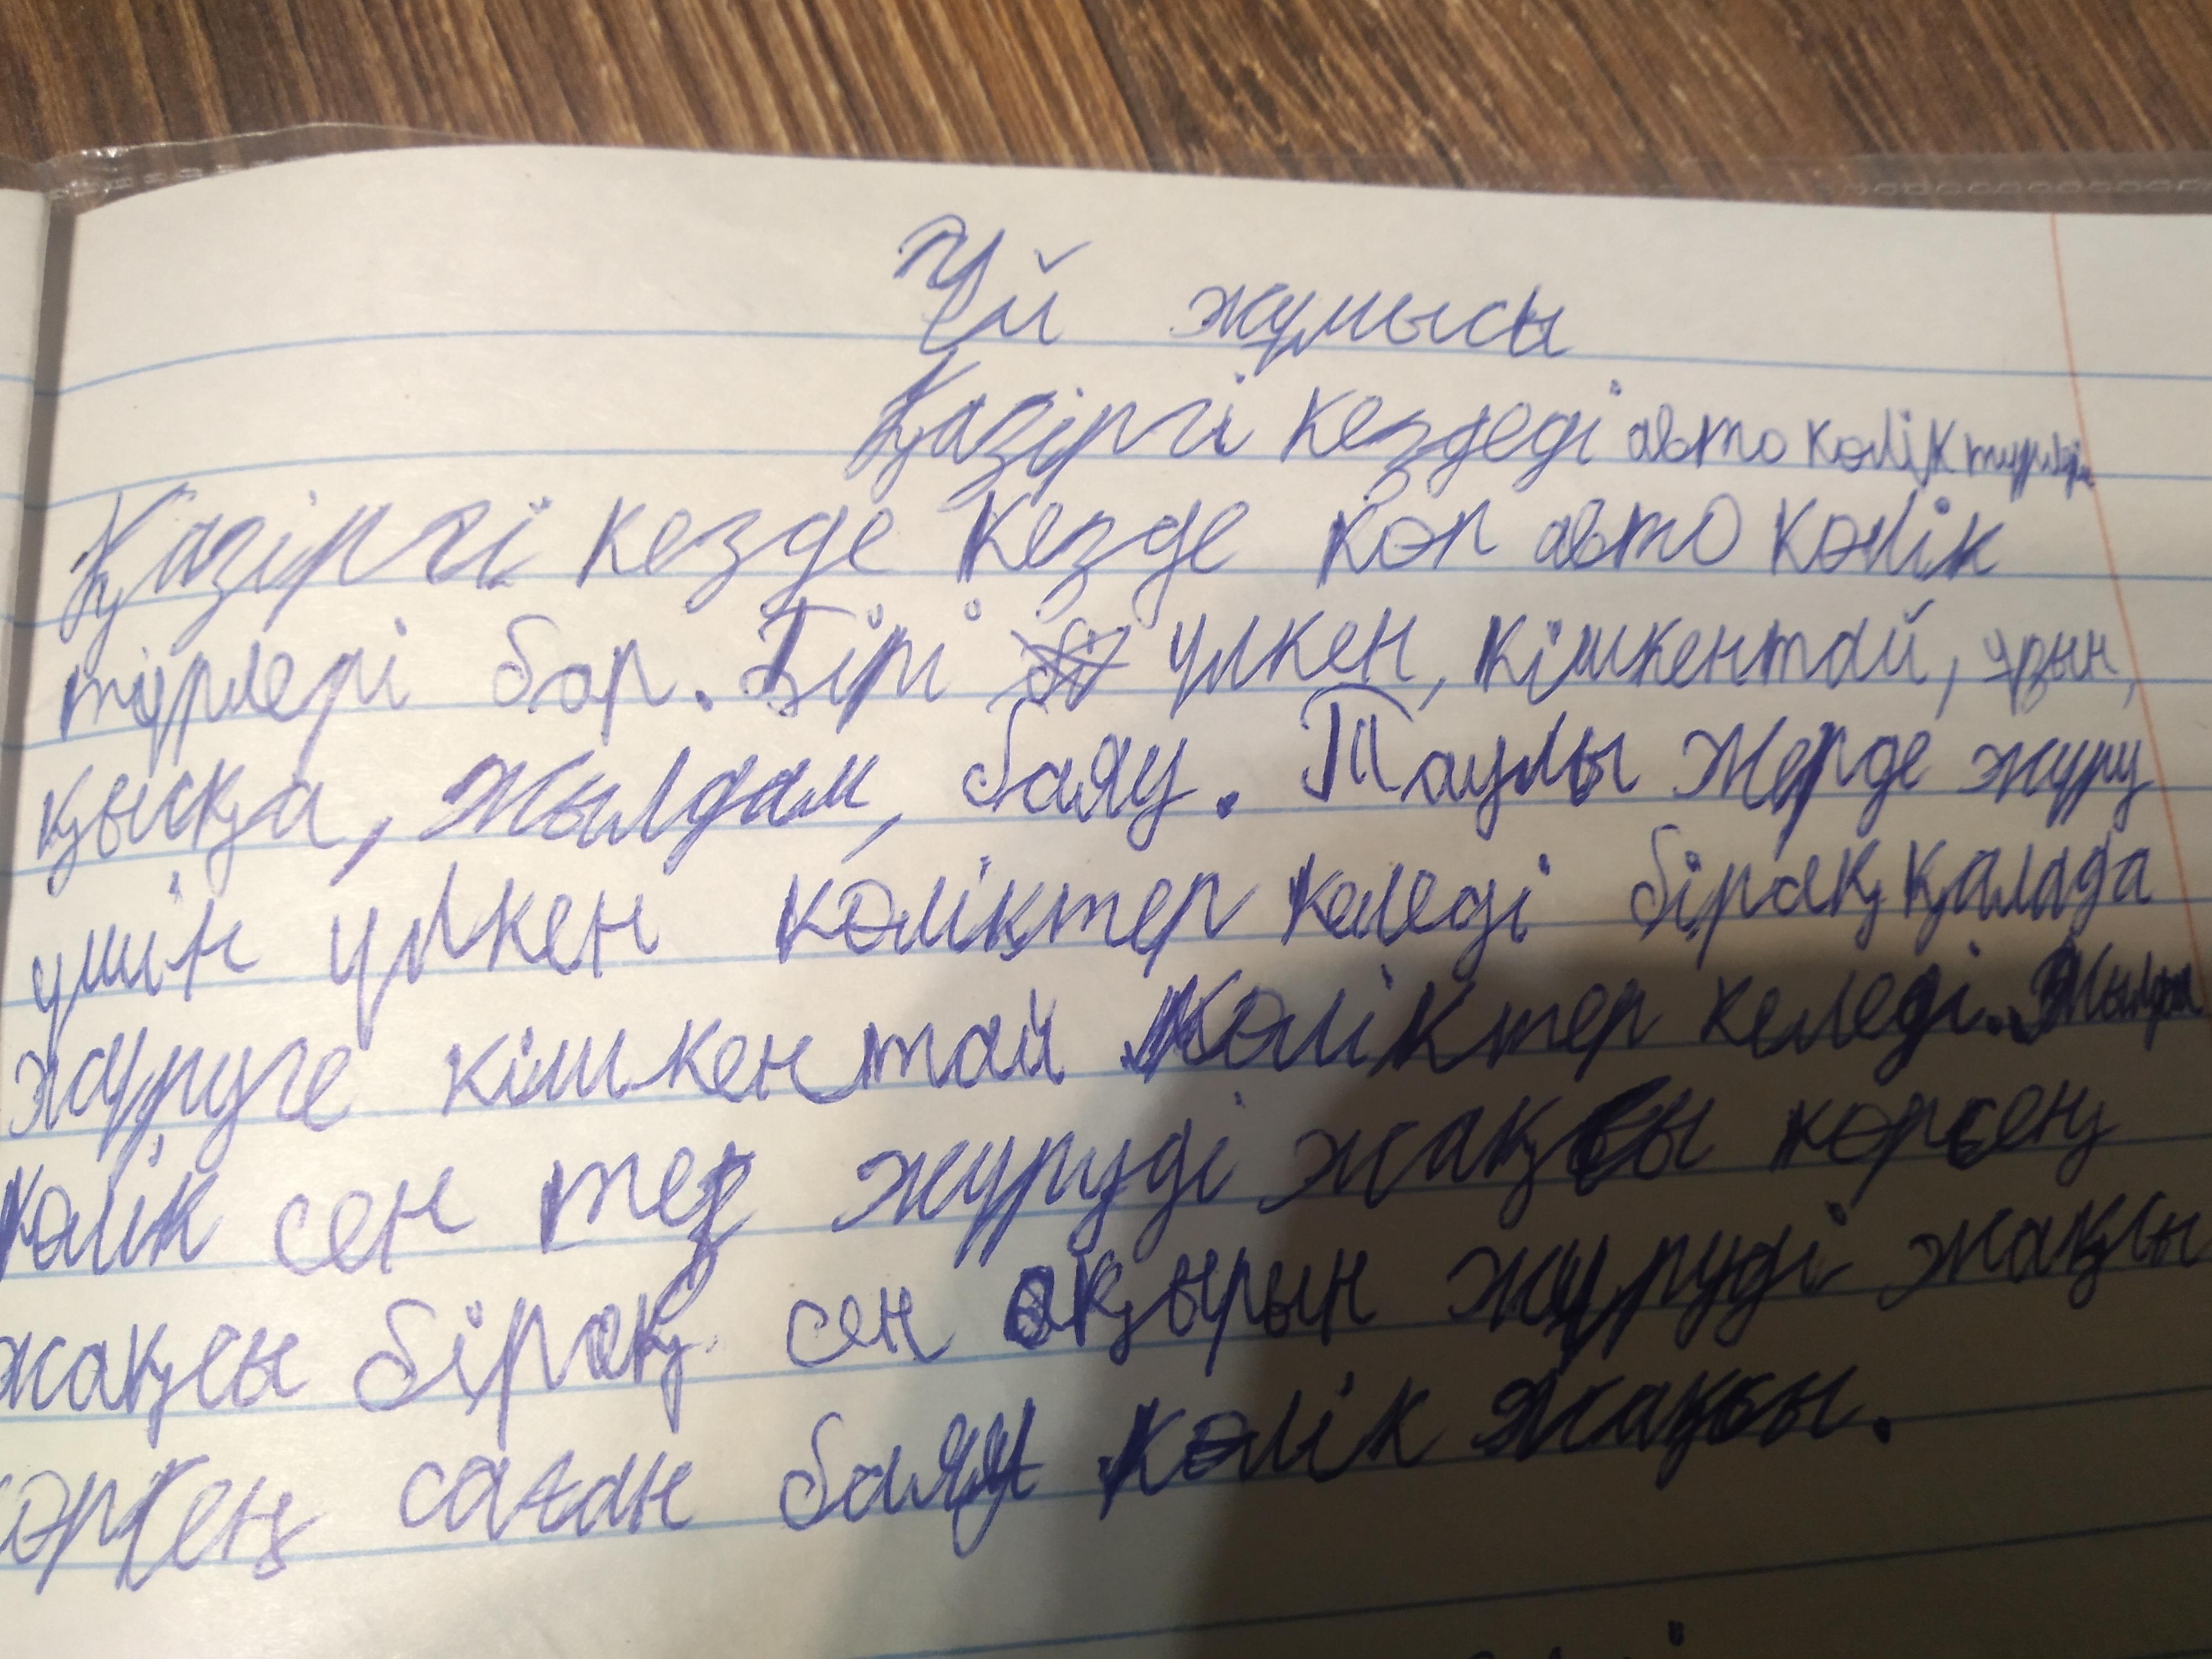 Үй жұмысы
Қазіргі кездеді авто көлік түрлері
Қазіргі кезде кезде көп авто көлік
түрлері бар. Бірі үлкен, кішкентай, ұзын,
қысқа, жылдам, баяу. Таулы жерде жүру
үшін үлкен көліктер келеді бірақ қалада
жүруге кішкентай көліктер келеді. Жылдам
көлік сен тез жүруді жақсы көрсең
жақсы бірақ сен ақырын жүруді жақсы
көрсең саған баяу көлік жақсы.